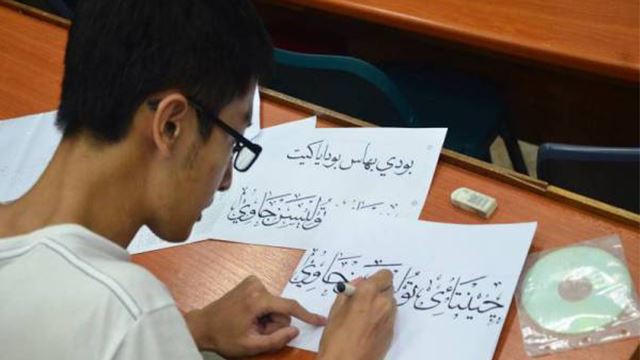 بودي بهاس بودايا كيت
توليسن جاوي
چينتاءي توليسن جاوي